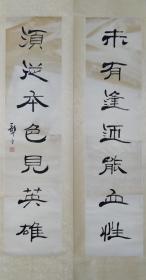 未有逢迎能血性
須從本色見英雄